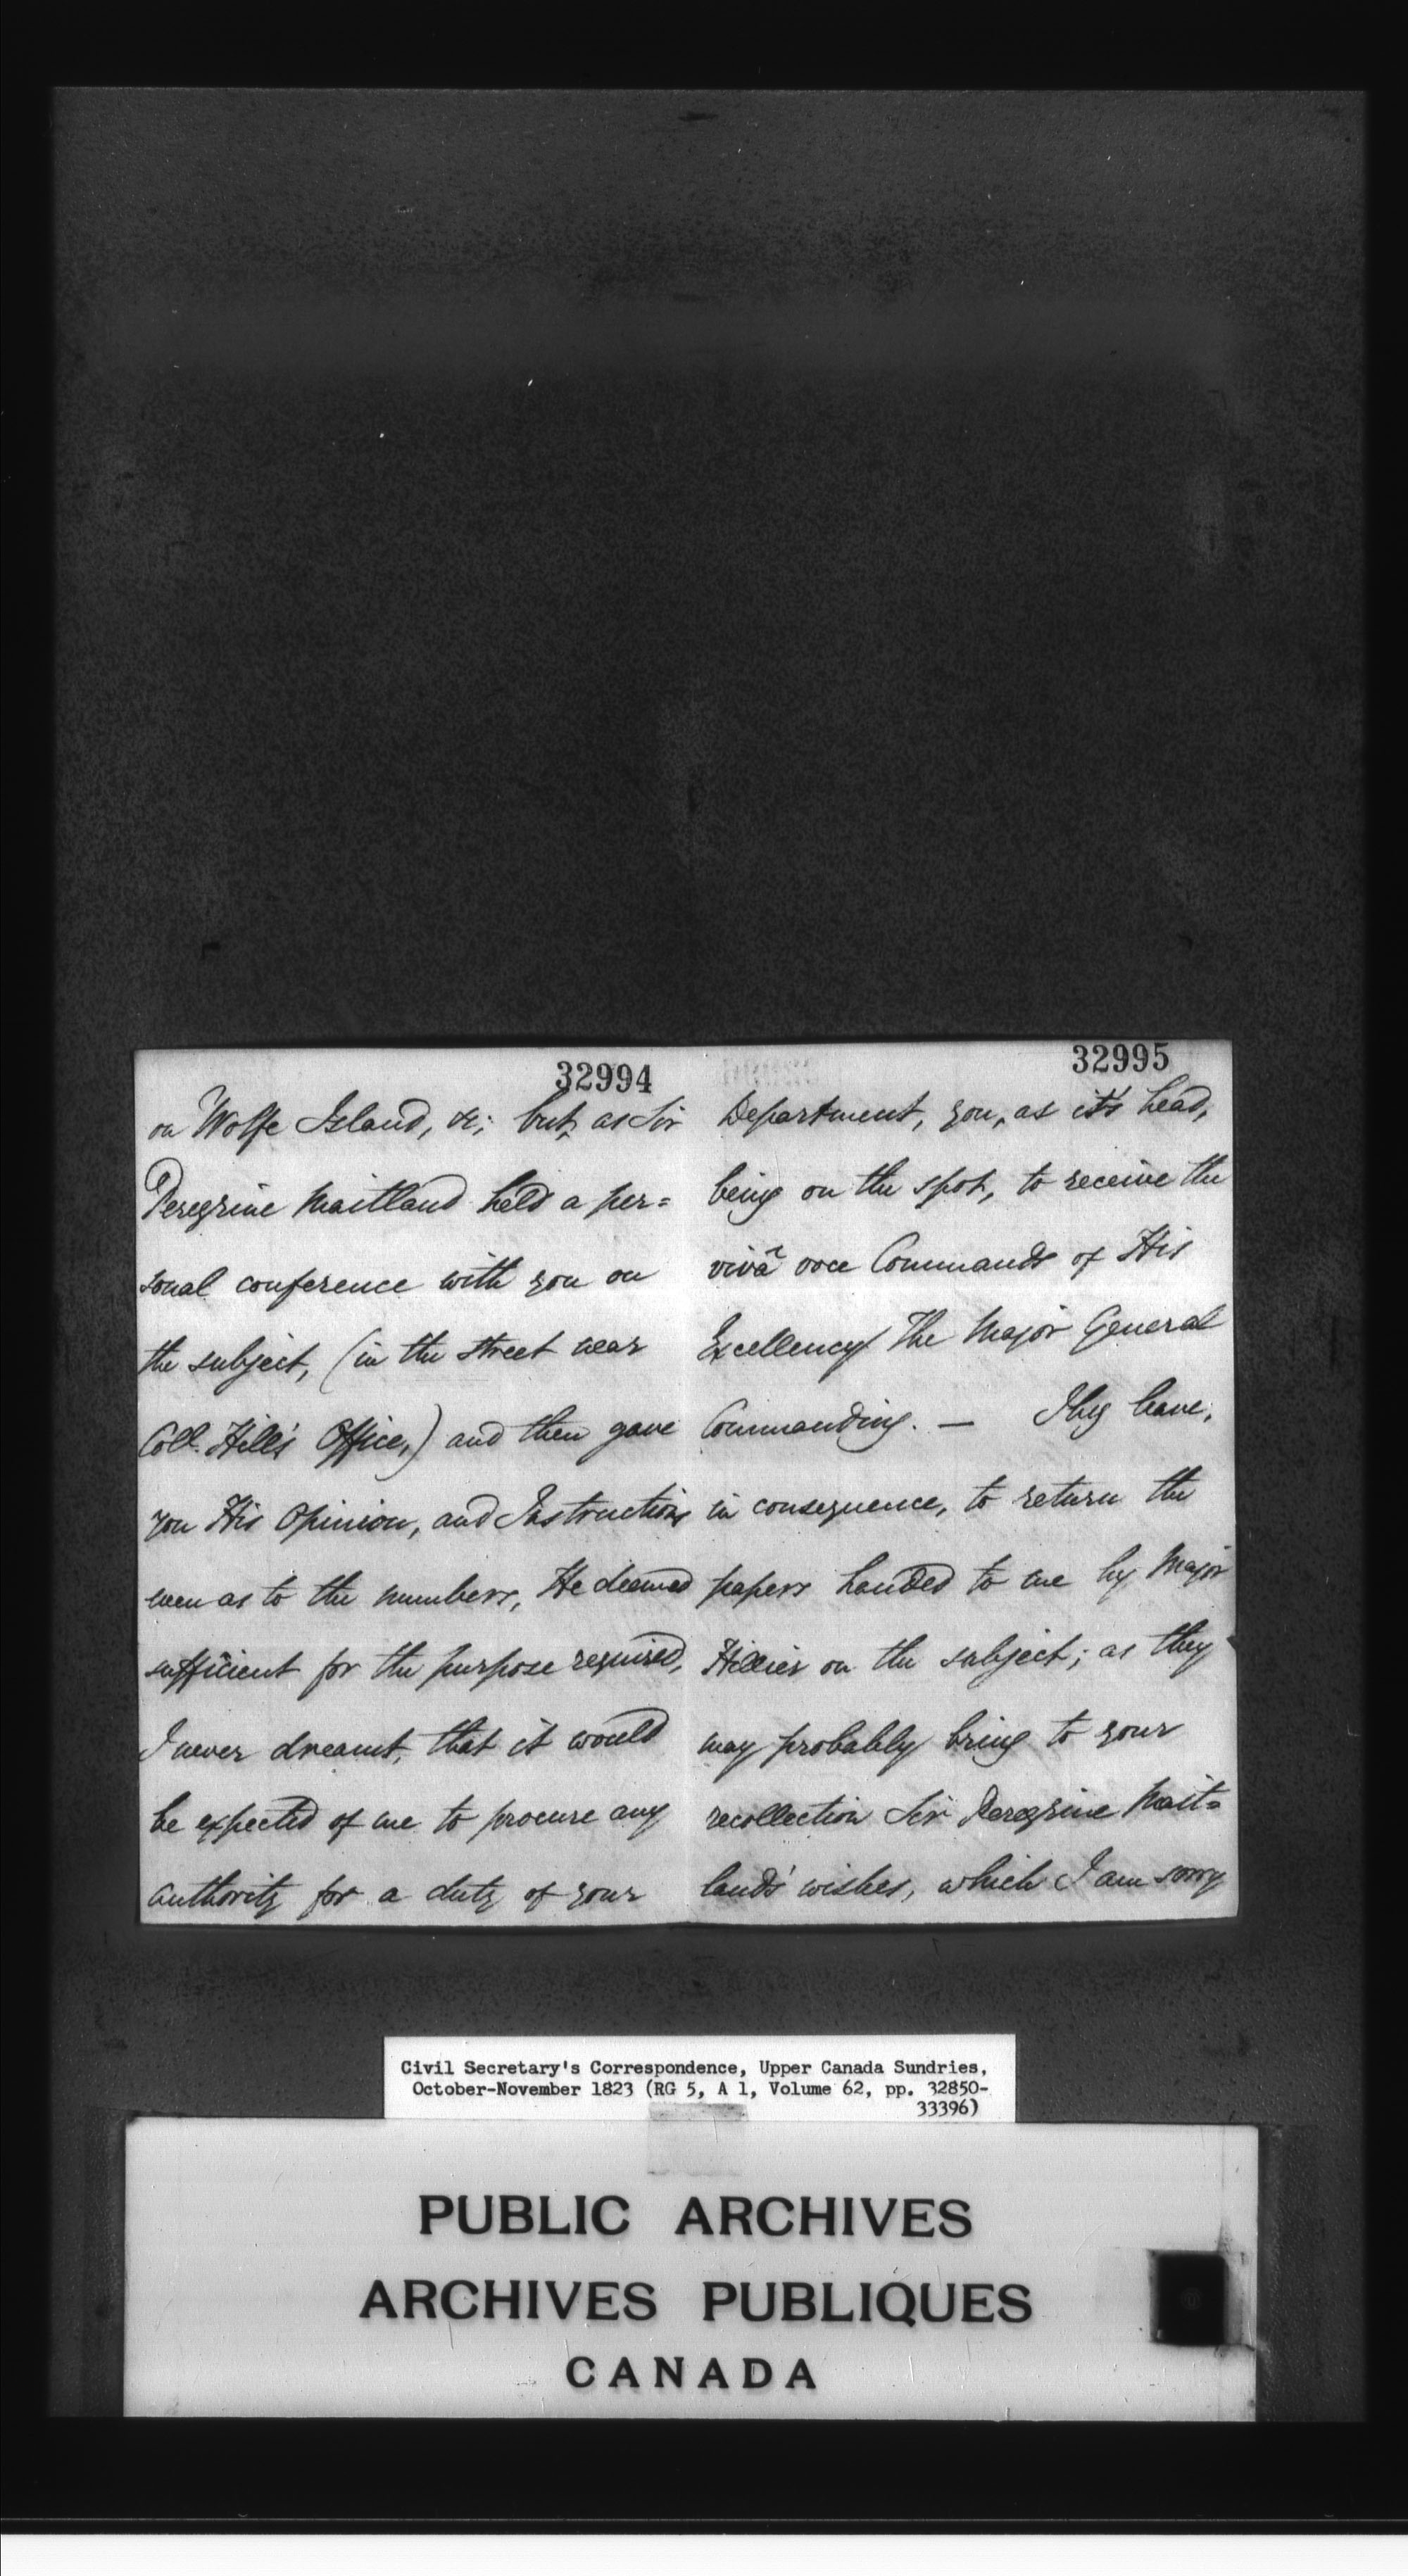 32994
on Wolfe Island, &c; but, as Sir
Peregrine Maitland held a per=
sonal conference with you on
the subject, (in the street near
Coll. Hill's Office,) and then gave
you His Opinion, and Instructions
even as to the numbers, He deemed
sufficient for the purpose required,
I never dreamt, that it would
be expected of me to procure any
authority for a duty of your
32995
Department, you, as it's head,
being on the spot, to receive the
vivâ voce Commands of His
Excellency The Major General
Commanding. — I beg leave,
in consequence, to return the
papers handed to me by Major
Hillier on the subject; as they
may probably bring to your
recollection Sir Peregrine Mait=
lands' wishes, which I am sorry
Civil Secretary's Correspondence, Upper Canada Sundries,
October-November 1823 (RG 5, A 1, Volume 62, pp. 32850-
33396)
PUBLIC ARCHIVES
ARCHIVES PUBLIQUES
CANADA